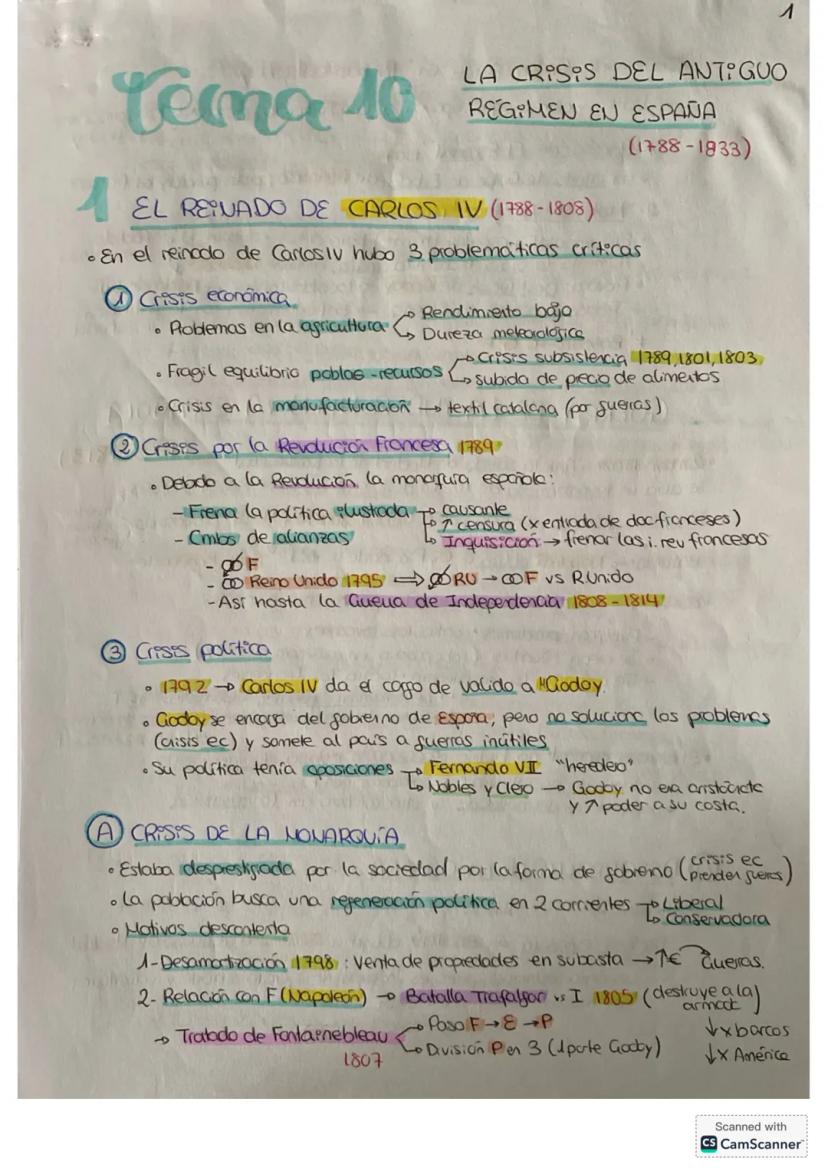 1
Tema 10
LA CRISIS DEL ANTIGUO
RÉGIMEN EN ESPAÑA
(1788-1833)
1 EL REINADO DE CARLOS IV (1788-1808)
• En el reinado de Carlos IV hubo 3 problemáticas críticas
① Crisis económica
• Problemas en la agricultura → Rendimiento bajo
→ Dureza meteorológica
• Fragil equilibrio poblac-recursos → Crisis subsistencia 1789, 1801, 1803
→ subida de precio de alimentos
• Crisis en la manufacturación → textil catalana (por guerras)
② Crisis por la Revolución Francesa 1789
• Debido a la Revolución, la monarquía española:
- Frena la política ilustrada → causante
→ ↑ censura (x entrada de doc franceses)
- Cmbs de alianzas → Inquisición → frenar las i. rev francesas
- F
- Reino Unido 1795 ⇒ RU → ∞ F vs R.Unido
- Así hasta la Guerra de Independencia 1808-1814
③ Crisis política
• 1792 → Carlos IV da el cargo de valido a M Godoy.
• Godoy se encarga del gobierno de España, pero no soluciona los problemas
(crisis ec) y somete al país a guerras inútiles
• Su política tenía oposiciones → Fernando VII "heredero"
→ Nobles y Clero → Godoy no era aristócrata
y ↑ poder a su costa.
Ⓐ CRISIS DE LA MONARQUÍA
• Estaba desprestigiada por la sociedad por la forma de gobierno (crisis ec
prenden guerras)
• La población busca una regeneración política en 2 corrientes → Liberal
→ Conservadora
• Motivos descontento
1-Desamortización 1798: Venta de propiedades en subasta → ↑€ Guerras.
2- Relación con F (Napoleón) → Batalla Trafalgar vs I 1805 (destruye a la
armada)
→ Tratado de Fontainebleau → Paso F → E → P ↓x barcos
1807 → División P en 3 (1 parte Godoy) ↓x América
Scanned with
CS CamScanner